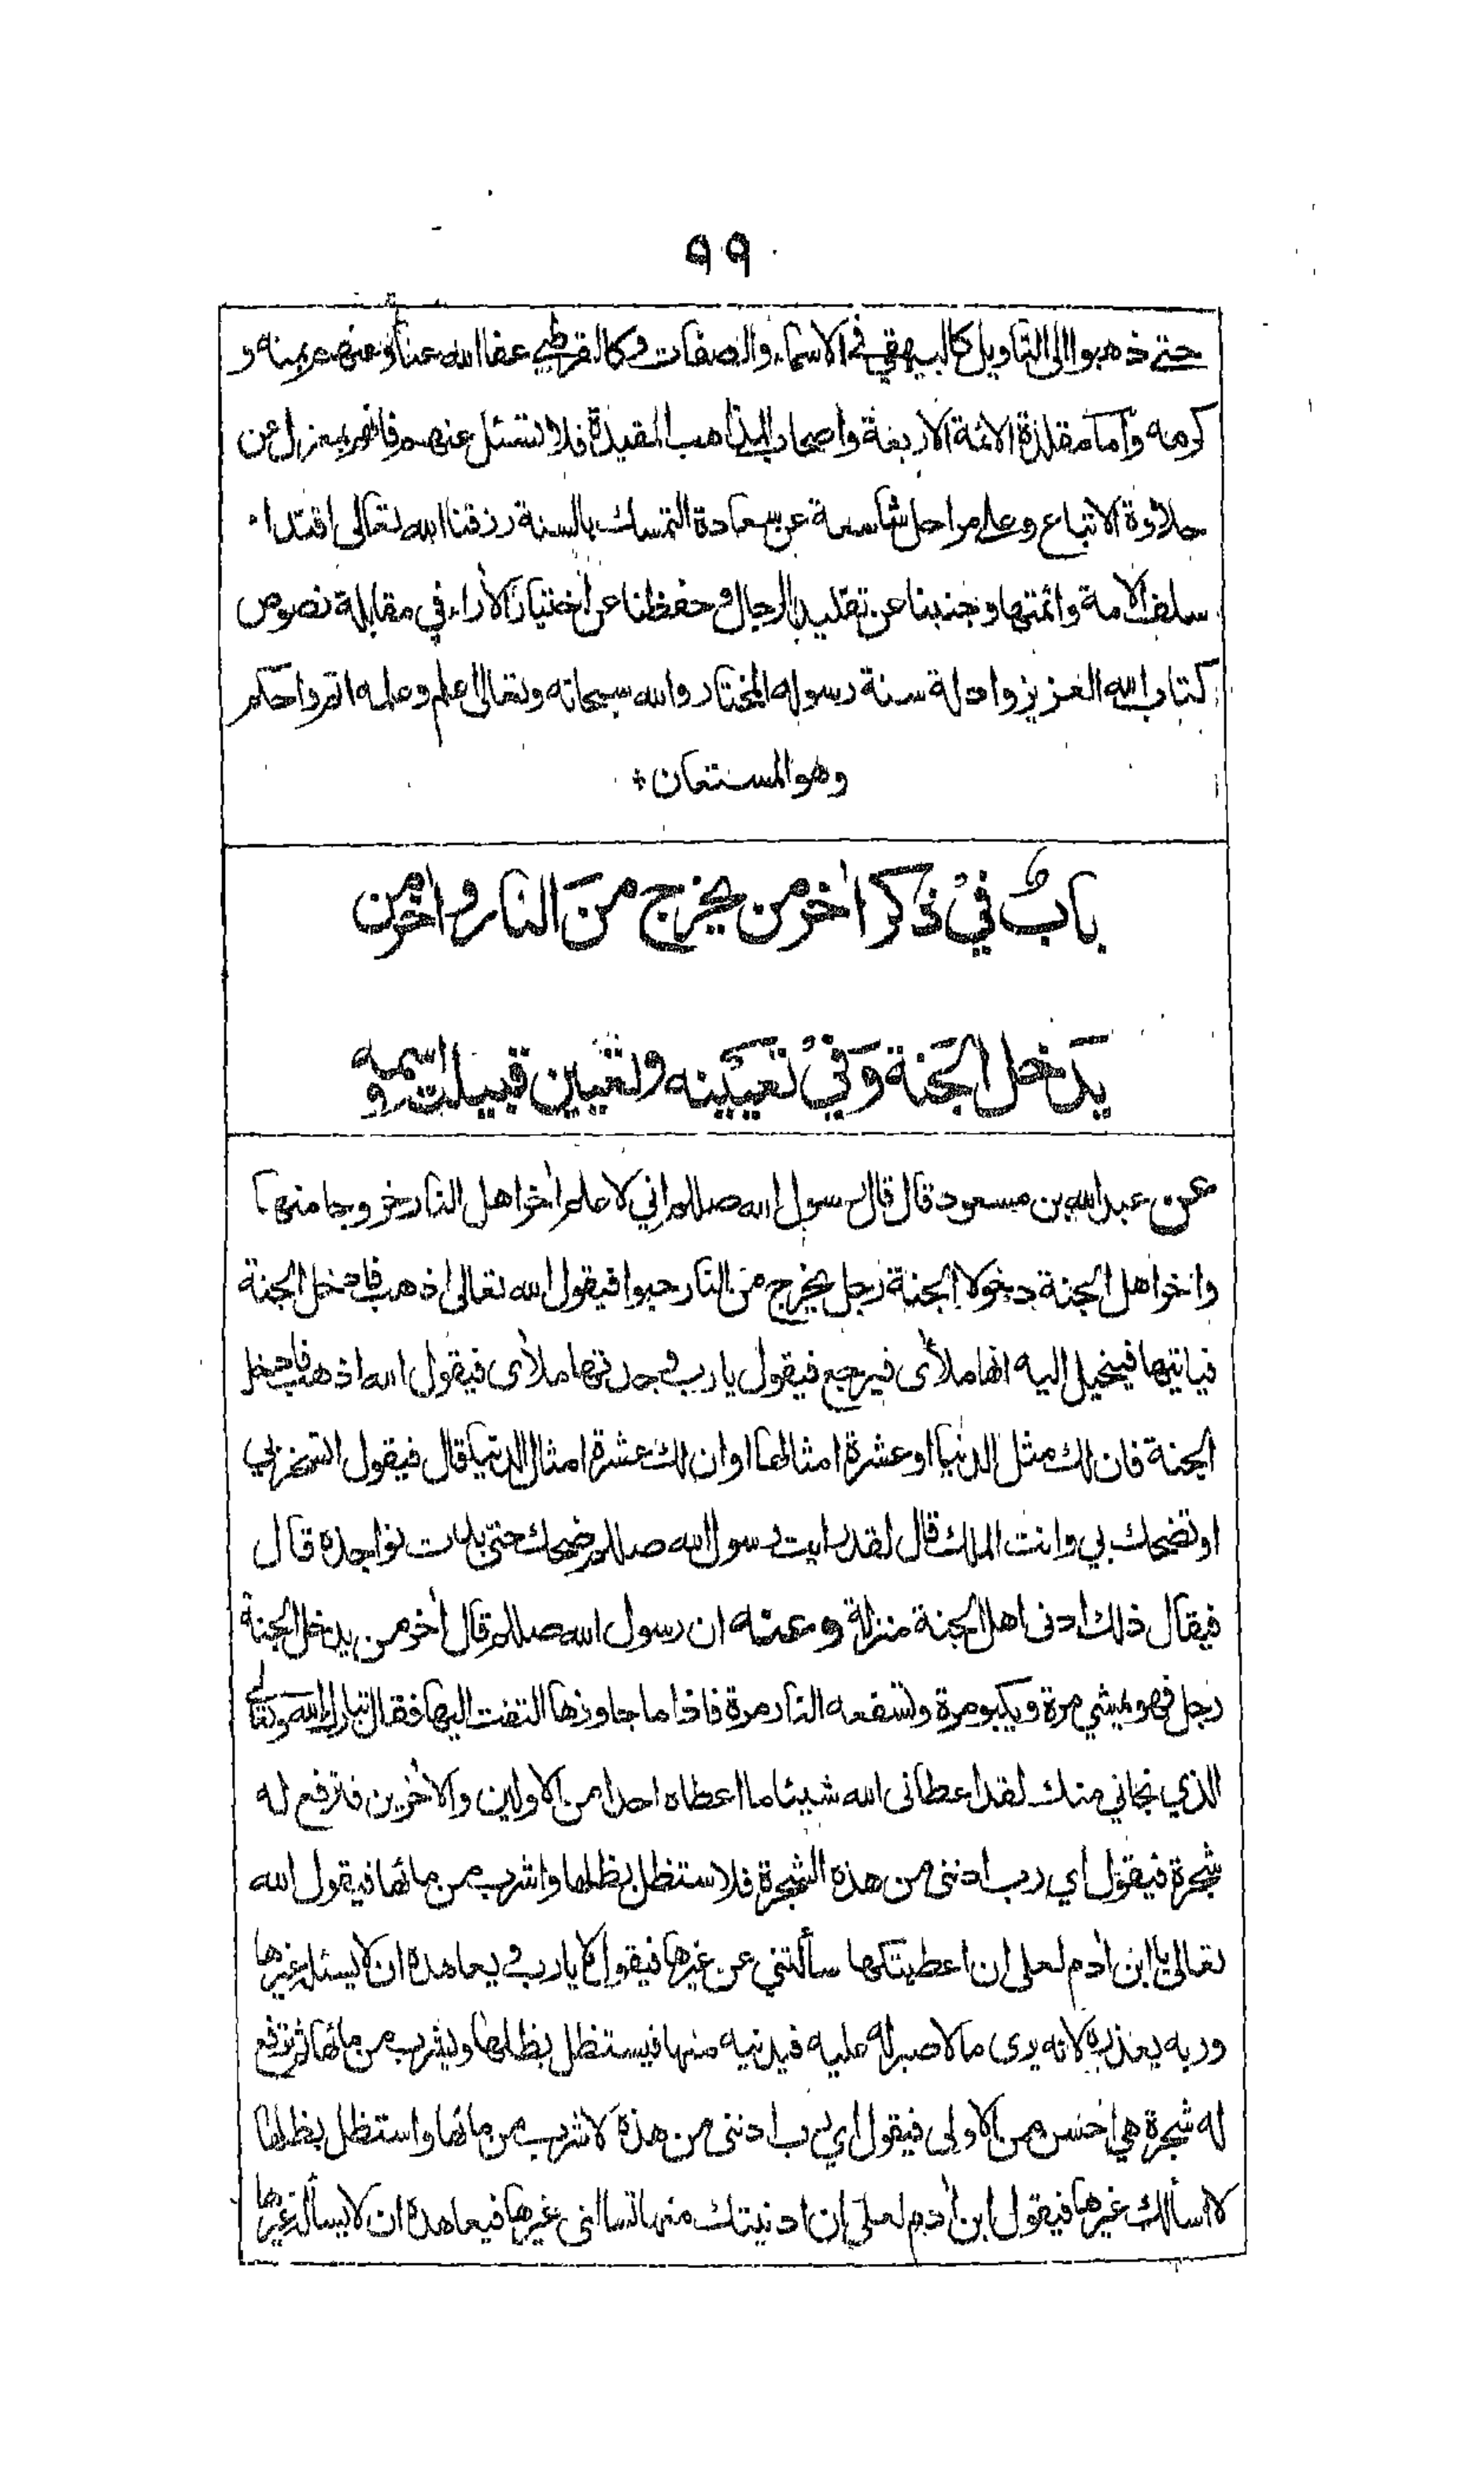 ٩٩
حتى ذهبوا الى التاويل كالبيهقي في الاسماء والصفات وكالقرطبي عفا الله عنا وعنهم بمنه و
كرمه واما مقلدة الائمة الاربعة واصحاب المذاهب المقيدة فلا تسئل عنهم فانهم بمعزل عن
حلاوة الاتباع وعلى مراحل شاسعة عن سعادة التمسك بالسنة رزقنا الله تعالى اقتداء
سلف الامة وائمتها وجنبنا عن تقليد الرجال وحفظنا عن اختيار الأراء في مقابلة نصوص
كتاب الله العزيز وادلة سنة رسوله المختار والله سبحانه وتعالى اعلم وعلمه اتم واحكم
وهو المستعان +
بابٌ فيْ ذكر اٰخر من يخرج منَ النار واٰخر من
يَدخل الجَنة وَفيْ تعيَينه وتعيين قبيلته واسمه
عن عبد الله بن مسعود قال قال رسول الله صللم اني لاعلم اٰخر اهل النار خروجا منها
واٰخر اهل الجنة دخولا الجنة رجل يخرج من النار حبوا فيقول الله تعالى اذهب فادخل الجنة
فياتيها فيخيل اليه انها ملأى فيرجع فيقول يا رب وجدتها ملأى فيقول الله اذهب فادخل
الجنة فان لك مثل الدنيا وعشرة امثالها او ان لك عشرة امثال الدنيا قال فيقول اتسخر بي
او تضحك بي وانت الملك قال لقد رايت رسول الله صللم ضحك حتى بدت نواجذه قال
فيقال ذلك ادنى اهل الجنة منزلة وعنه ان رسول الله صللم قال اٰخر من يدخل الجنة
رجل فهو يمشي مرة ويكبو مرة وتسفعه النار مرة فاذا ما جاوزها التفت اليها فقال تبارك الله وتعالى
الذي نجاني منك لقد اعطاني الله شيئا ما اعطاه احدا من الاولين والاٰخرين فترفع له
شجرة فيقول اي رب ادنني من هذه الشجرة فلاستظل بظلها واشرب من مائها فيقول الله
تعالى يا ابن اٰدم لعلي ان اعطيتكها سألتني عن غيرها فيقول لا يا رب ويعاهده ان لا يسئله غيرها
وربه يعذره لانه يرى ما لا صبر له عليه فيدنيه منها فيستظل بظلها ويشرب من مائها ثم ترفع
له شجرة هي احسن من الاولى فيقول اي رب ادنني من هذه لاشرب من مائها واستظل بظلها
لا اسألك غيرها فيقول ابن اٰدم لعلي ان ادنيتك منها تسالني غيرها فيعاهده ان لا يسأله غيرها